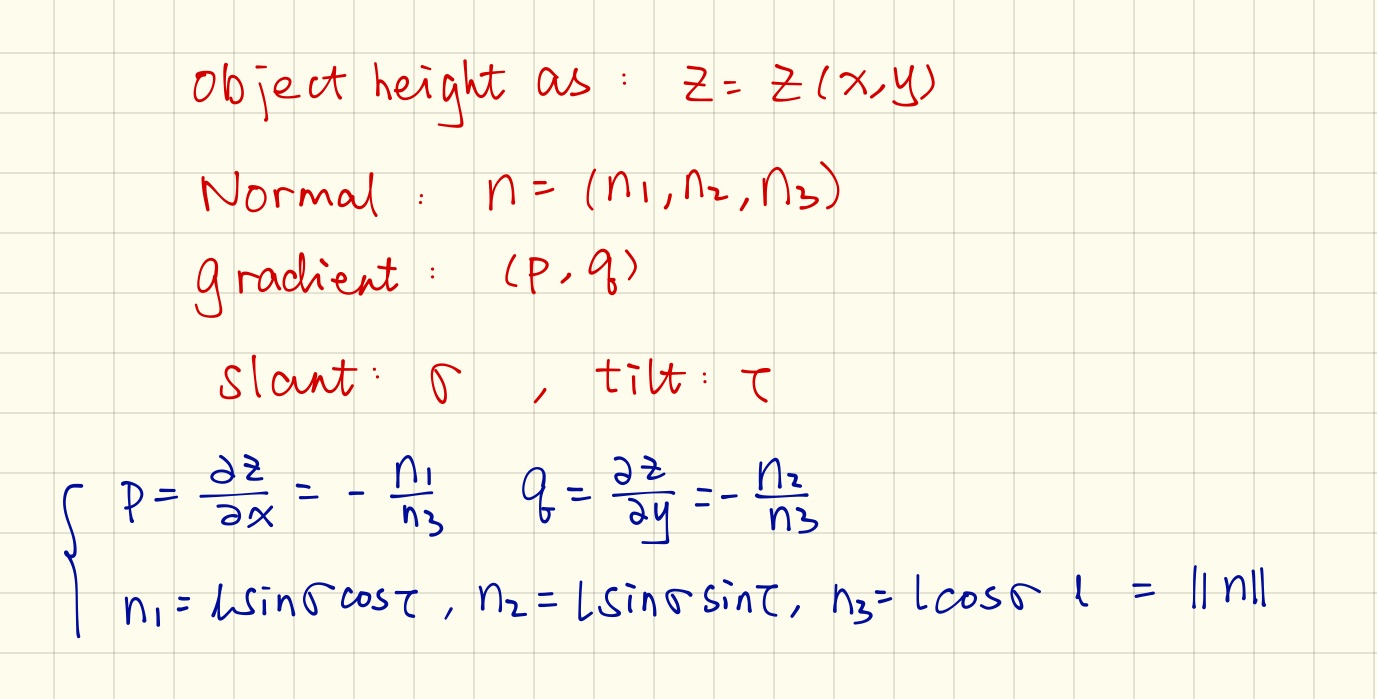 object height as : z = z(x,y)
Normal : n = (n₁, n₂, n₃)
gradient : (p, q)
slant : σ , tilt : τ
p = ∂z/∂x = - n₁/n₃ q = ∂z/∂y = - n₂/n₃
n₁ = l sinσ cosτ , n₂ = l sinσ sinτ, n₃ = l cosσ l = ||n||